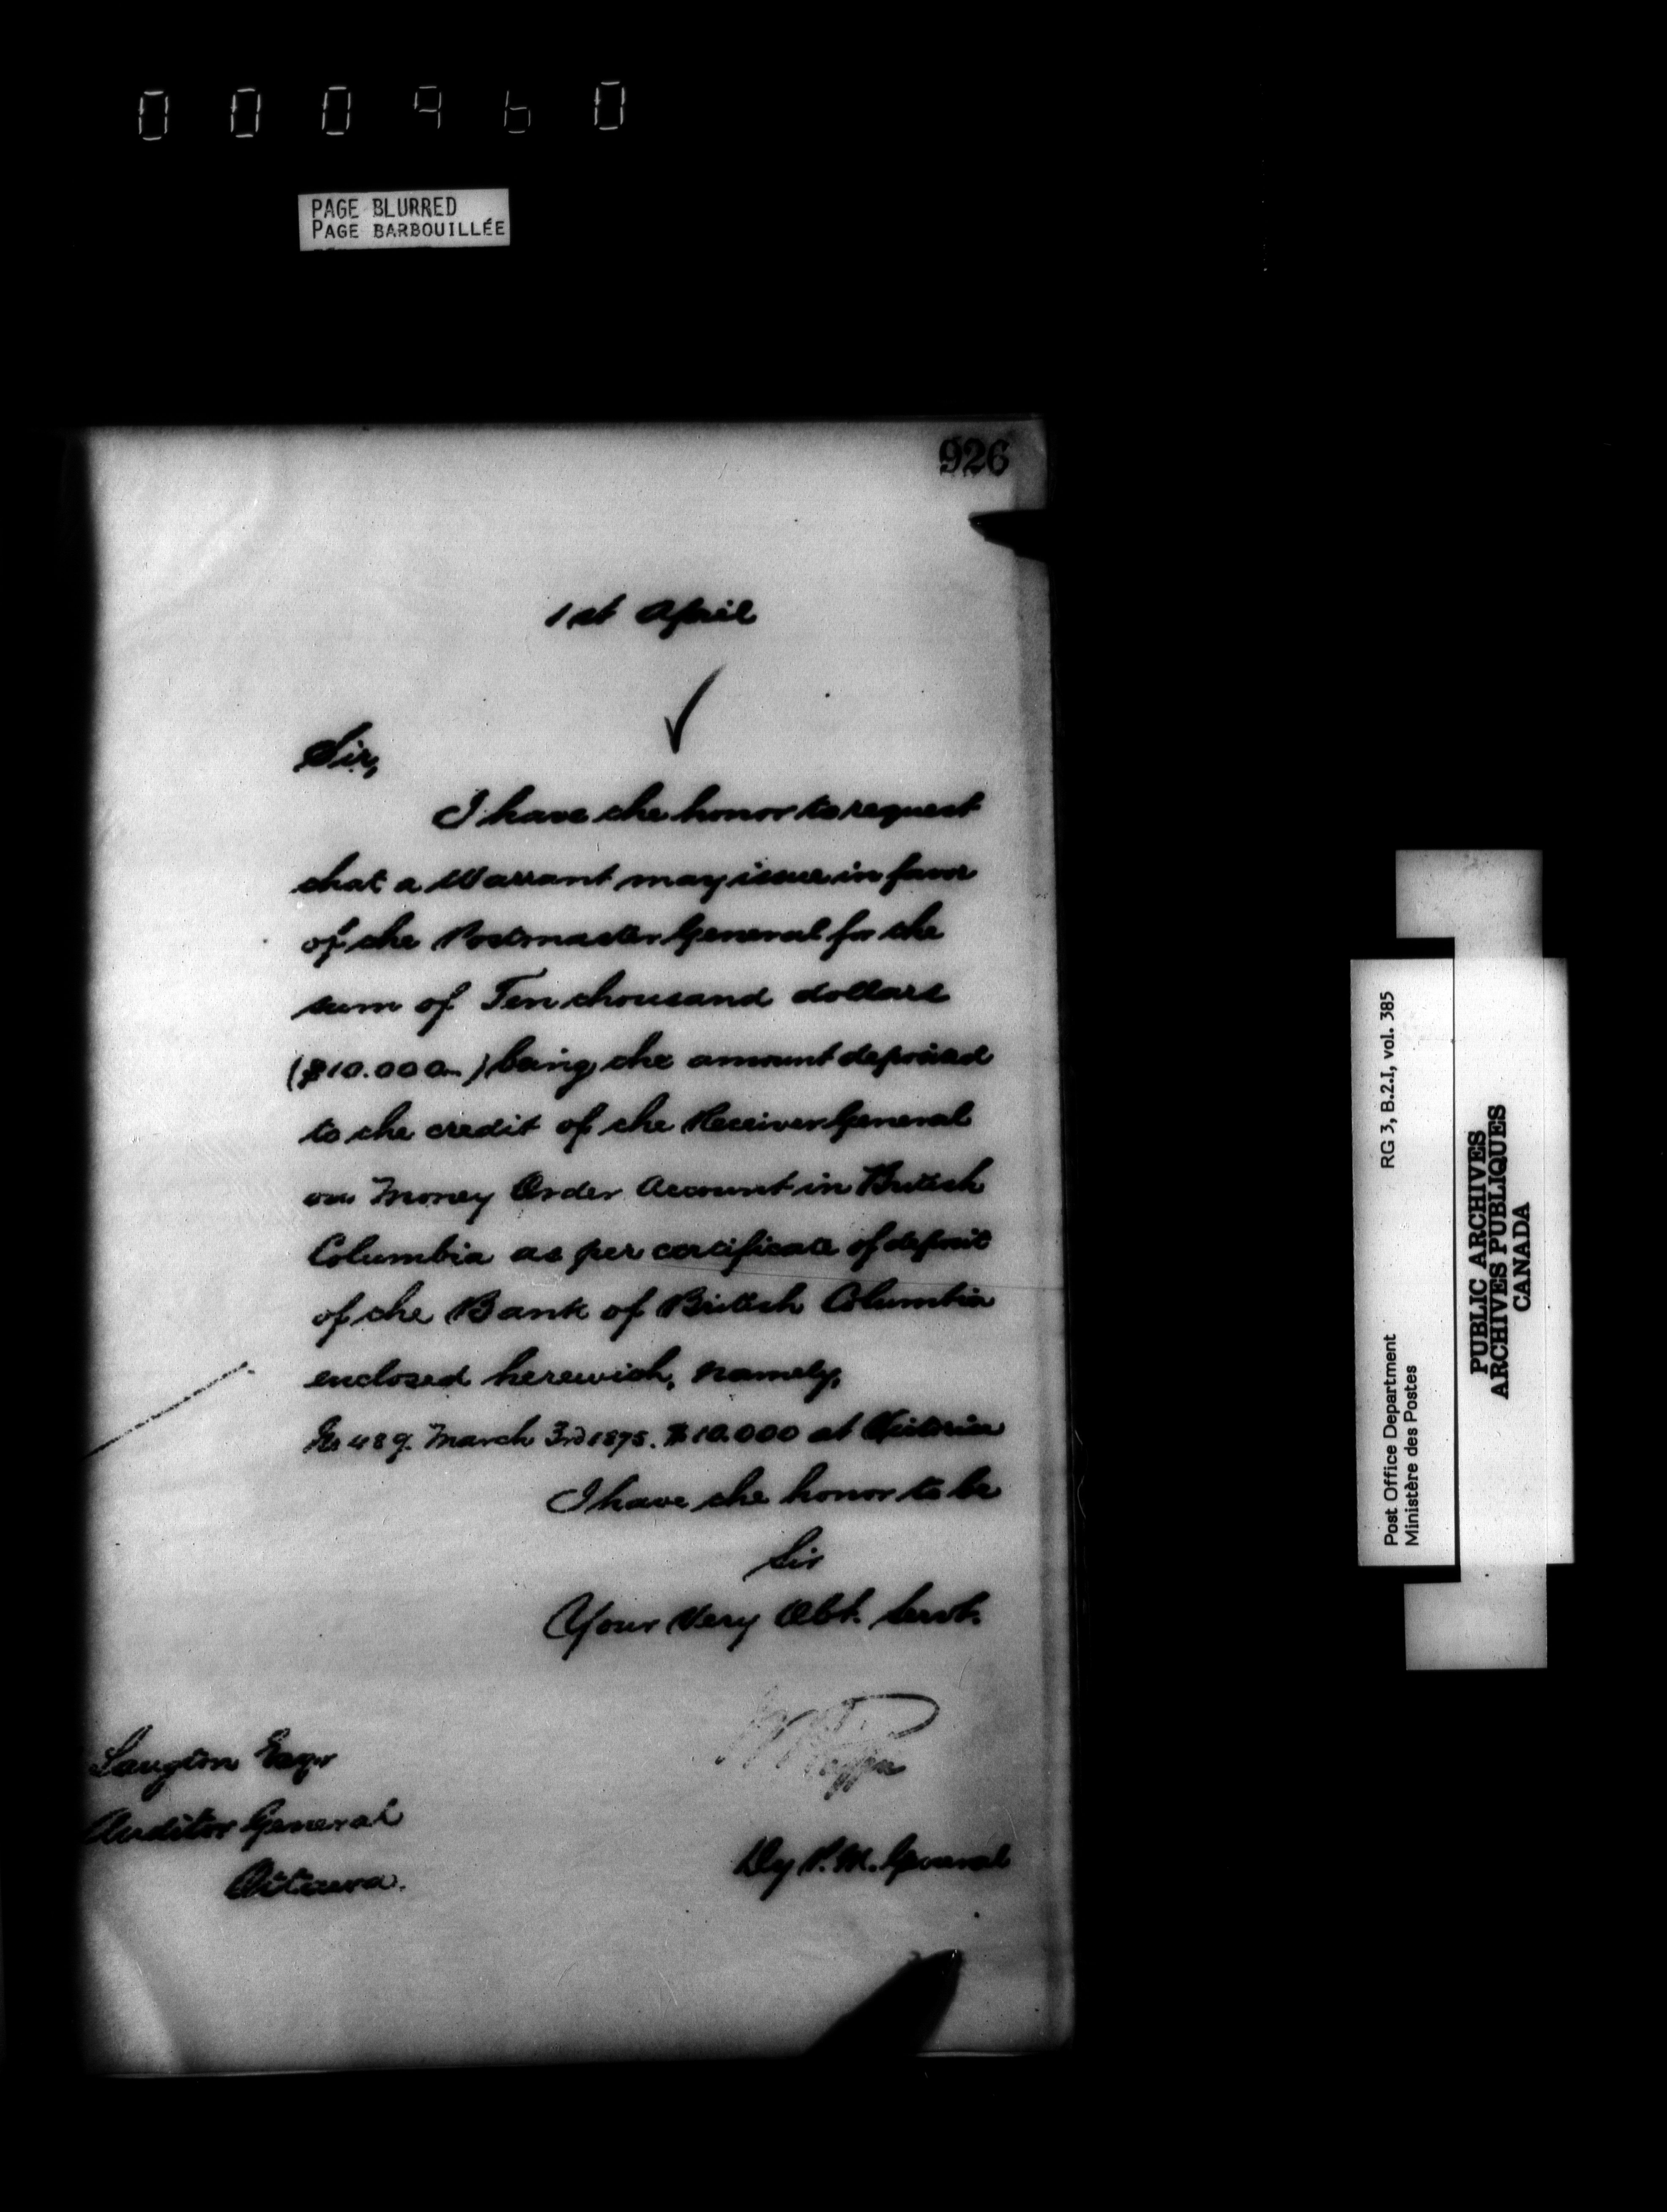 000960
PAGE BLURRED
PAGE BARBOUILLÉE
926
1st April
Sir,
I have the honor to request
that a Warrant may issue in favor
of the Postmaster General for the
sum of Ten thousand dollars
($10.000) being the amount deposited
to the credit of the Receiver General
on Money Order Account in British
Columbia as per certificate of deposit
of the Bank of British Columbia
enclosed herewith, namely,
No 489. March 3rd 1875. $10.000 at Victoria
I have the honor to be
Sir
Your Very Obt. Servt.
Langton Esqr
Auditor General
Ottawa.
Dy P. M. General
Post Office Department RG 3, B.2.I, vol. 385
Ministère des Postes
PUBLIC ARCHIVES
ARCHIVES PUBLIQUES
CANADA